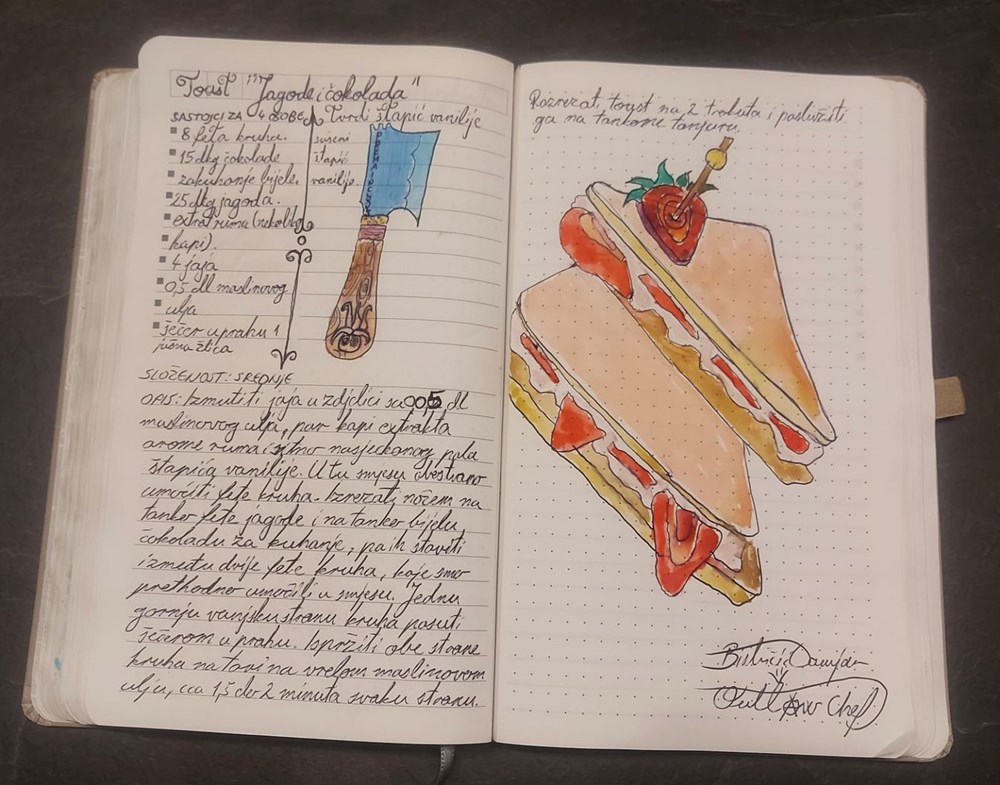 Toast "Jagode i čokolada"
SASTOJCI ZA 4 OSOBE
Tvrdi štapić vanilije
▪ 8 feta kruha.
▪ 15 dkg čokolade
▪ zakuhanje bijele.
▪ 25 dkg jagoda.
▪ extrat ruma (nekoliko
kapi).
▪ 4 jaja
▪ 0,5 dl maslinovog
▪ ulja
▪ šećer u prahu 1
jušna žlica
sušeni
štapić
vanilije.
SLOŽENOST: SREDNJE
OPIS: Izmutiti jaja u zdjelici sa 005 dl
maslinovog ulja, par kapi extrakta
arome ruma i sitmo nasjeckanog pola
štapića vanilije. U tu smjesu obostrano
umočiti fete kruha. Izrezati nožem na
tanker fete jagode i na tanker bijelu
čokoladu za kuhanje, pa ih staviti
između dvije fete kruha, koje smo
prethodno umočili u smjesu. Jednu
gornju vanjsku stranu kruha posuti
šećerom u prahu. Ispržiti obe strane
kruha na tavi na vrelom maslinovom
ulju, cca 1,5 do 2 minuta svaku stranu.
Rozrezat, toast na 2 trokuta i poslužiti
ga na tankome tanjuru.
Chef